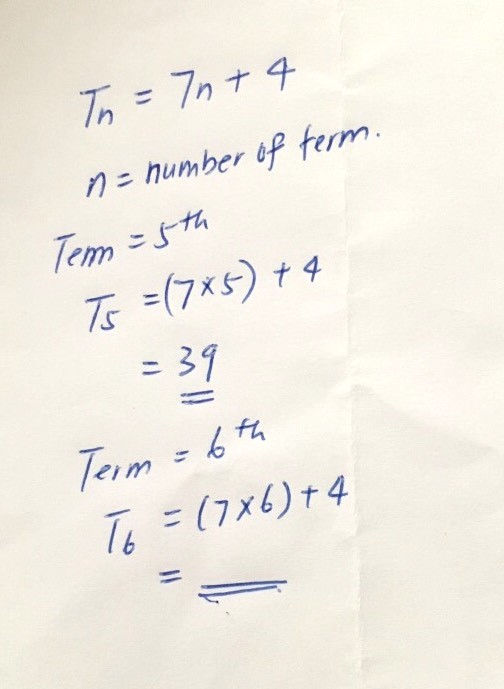 Tn = 7n + 4
n = number of term.
Term = 5th
T5 = (7x5) + 4
= 39
Term = 6th
T6 = (7x6) + 4
=